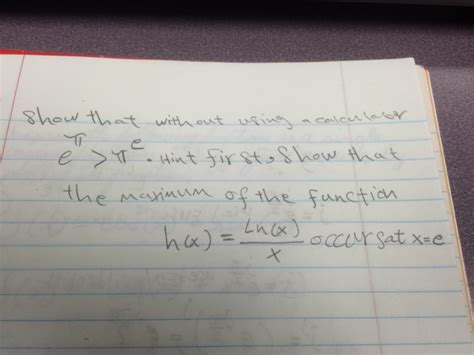 Show that without using a calculator
e^π > π^e. Hint first, Show that
the maximum of the function
h(x) = Ln(x)/x occurs at x=e